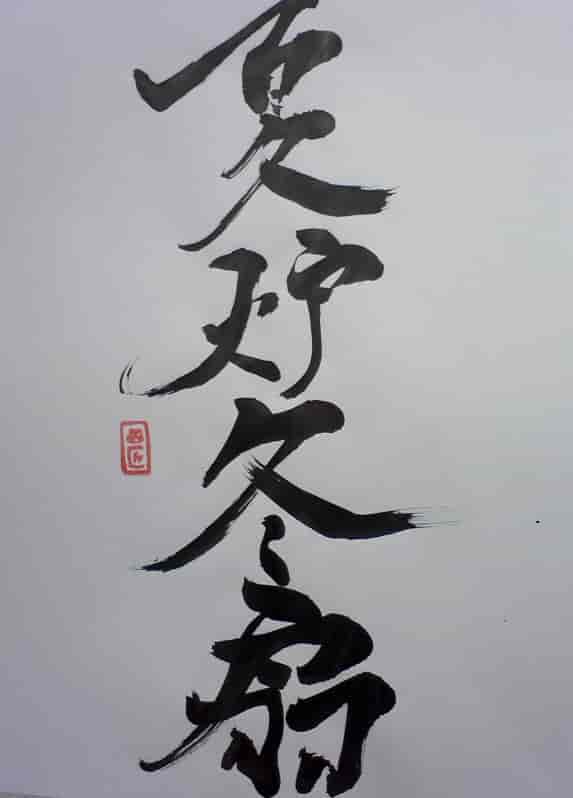 夏炉冬扇